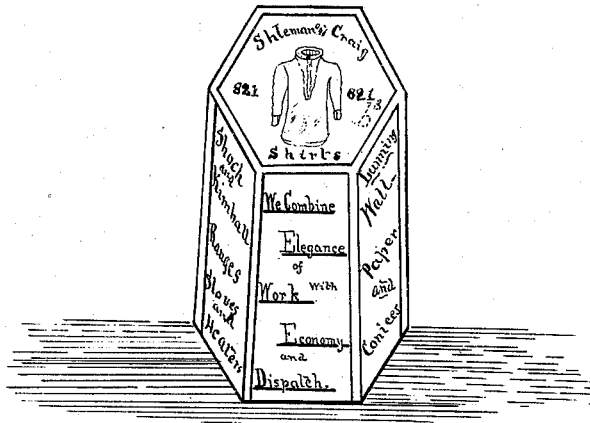 Shleman & Craig
821
621
Shirts
Shoch
and
Kimball
Ranges
Stoves
and
Heaters
We Combine
Elegance
of
Work with
Economy
and
Dispatch.
Luming
Wall
Paper
and
Conices